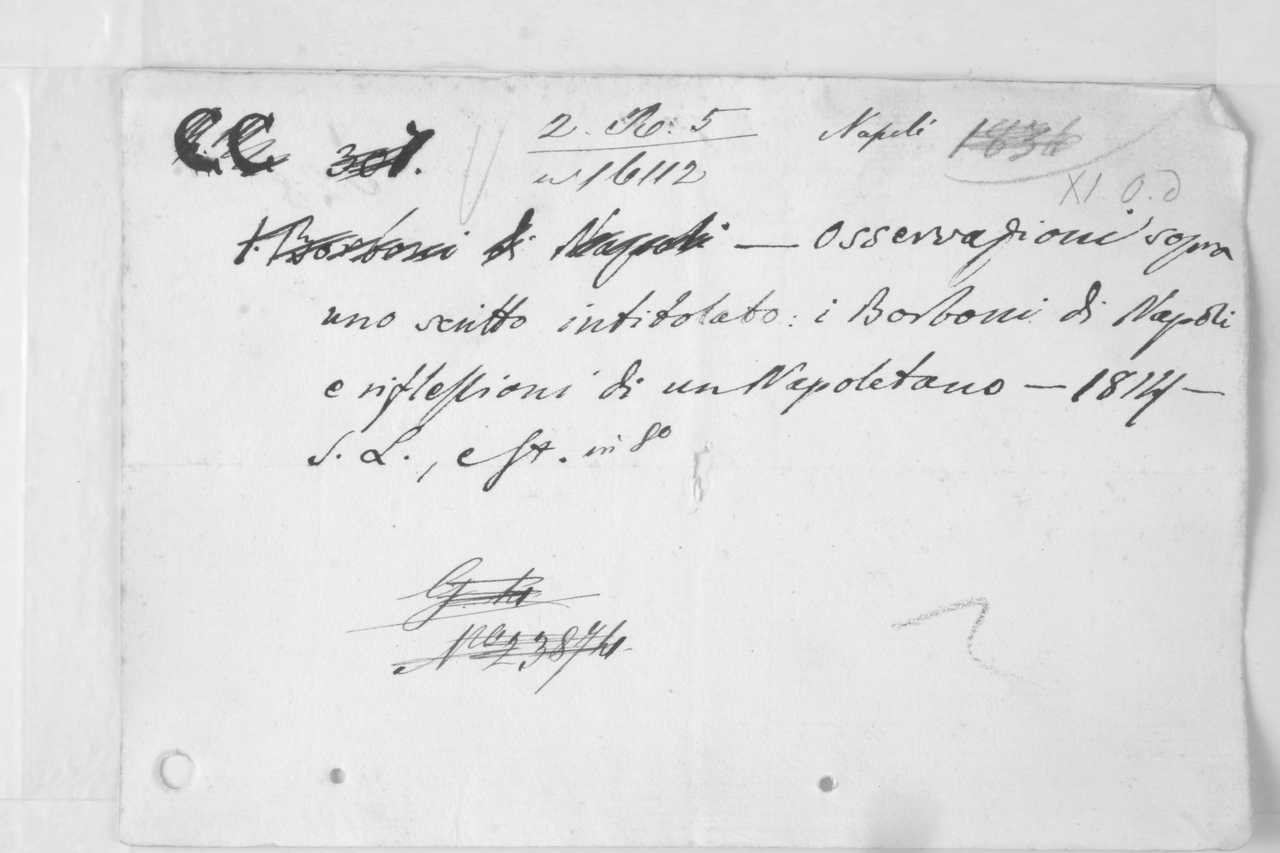 CC 307. 2. R. 5 Napoli 1834
nº 16112
XI. O. d
I Borboni di Napoli — Osservazioni sopra
uno scritto intitolato: i Borboni di Napoli
e riflessioni di un Napoletano — 1814 —
S. L., e St. in 8º
Nº 23874